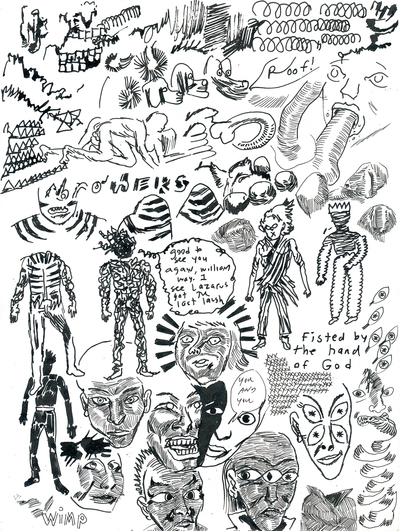 Roof!
good to
see you
again, william
way. I
see Lazarus
got the
last laugh
Fisted by
the hand
of God
YOU
AND
YOU
Wimp